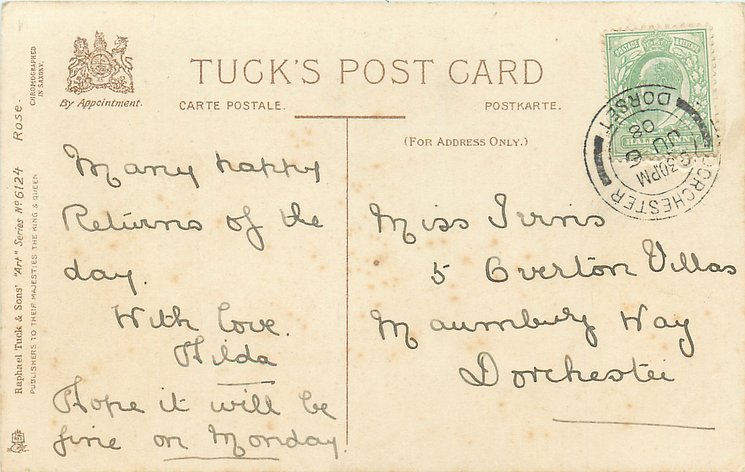 TUCK'S POST CARD
By Appointment.
CARTE POSTALE.
POSTKARTE.
(FOR ADDRESS ONLY.)
Many happy
Returns of the
day.
With love.
Hilda
Hope it will be
fine on Monday
Miss Ivins
5 Overton Villas
Maumbury Way
Dorchester
DORCHESTER
DORSET
30PM
JU 6
08
POSTAGE
HALF
Raphael Tuck & Sons' "Art" Series No 6124 Rose.
PUBLISHERS TO THEIR MAJESTIES THE KING & QUEEN
CHROMOGRAPHED
IN SAXONY.